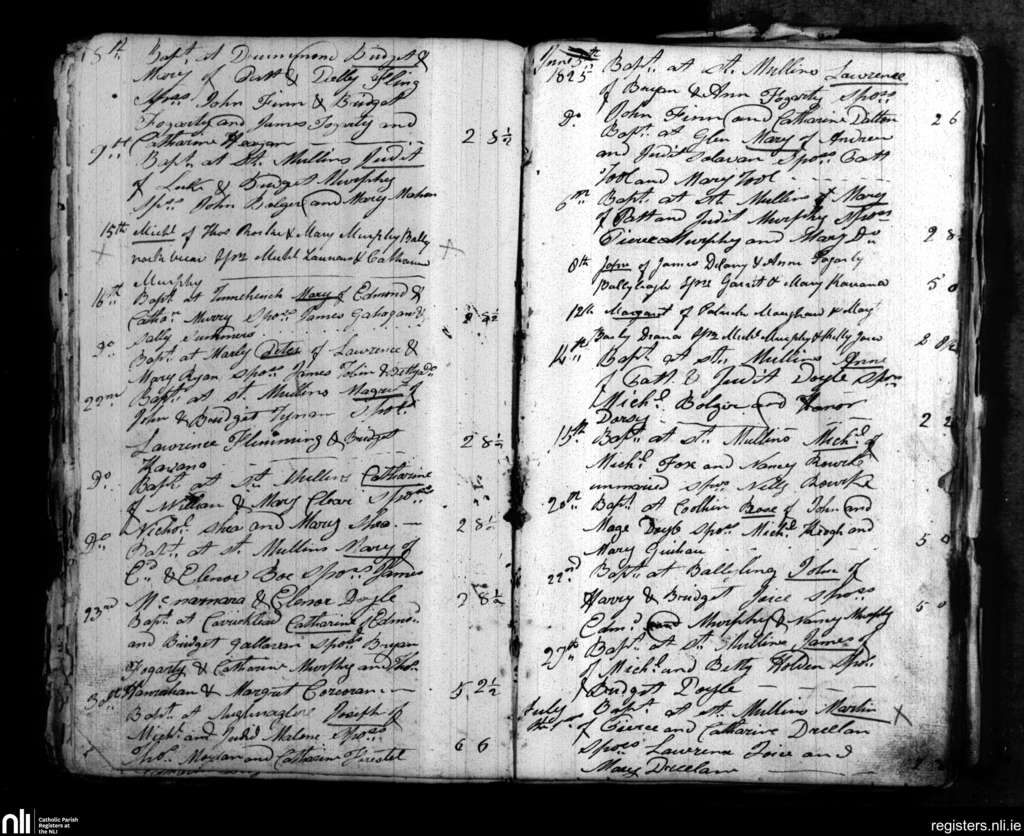 5th Bapt. at Drumynone Bridget &
Mary of Patt & Delly Fling
Spos. John Finn & Bridget
Fogarty and James Fogarty and
Catharine Heagan 2 8½
9th Bapt. at St. Mullins Judit
of Luke & Bridget Murphy
Spos. John Bolger and Mary Mahan
15th Michl. of Thos Roche & Mary Murphy Bally
Spos Michl Laurence & Catharine
Murphy
16th Bapt. at Tinnehinch Mary of Edmund &
Cathar. Murry Spos. James Gahagan & 2 8½
Sally Summers
Do Bapt. at Marly of Lawrence &
Mary Ryan Spos. James Tobin & Do
22nd Bapt. at St. Mullins Magret of
John & Bridget Tynan Spos.
Lawrence Flemming & Bridget 2 8½
Kavano
Do Bapt. at St. Mullins Catharine
of William & Mary Clear Spos.
Nichos. Shea and Mary Shea 2 8½
Do Bapt. at St. Mullins Mary of
Ed. & Elenor Boe Spos. James
McNamara & Elenor Doyle 2 8½
23rd Bapt. at Carricklead Catharine of Edmd.
and Bridget Gallaven Spos. Bryan
Fogarty & Catharine Murphy and Tho.
Hanrahan & Margret Corcoran 5 2½
30th Bapt. at Joseph of
Michl. and Judit Melone Spos.
Tho. and Catharine 6 6
June 5th
1825 Bapt. at St. Mullins Lawrence
of Bryan & Ann Fogarty Spos.
John Finn and Catharine Dalton 2 6
Do Bapt. at Glen Mary of Andrew
and Judit Spos. Patt
Tool and Mary Tool
6th Bapt. at St. Mullins Mary
of Patt and Judit Murphy Spos.
Pierce Murphy and Mary Do 2 8
8th John of James Delany & Anne Fogarty
Ballyleagh Spos Garrit & Mary Kavana 5 0
12th Margaret of Patrick & Mary
Spos Michl Murphy & 2 8½
14th Bapt. at St. Mullins Anne
of Patt & Judit Doyle Spos.
Michl. Bolger and Honor
Darsy 2 2
15th Bapt. at St. Mullins Michl. of
Michl. Fox and Nancy Rowrke
unmaried Spos Nelly Rowrke
20th Bapt. at Coolhin Rose of John and
Mage Doyle Spos. Michl. Keogh and
Mary 5 0
22nd Bapt. at Ballyling John of
Harry & Bridget Juice Spos.
Edmd. Murphy & Nancy Murphy 5 0
27th Bapt. at St. Mullins James of
of Michl. and Betty Holden Spos.
Bridget Doyle
July
the 1st Bapt. at St. Mullins Martin
of Pierce and Catharine Dreelan
Spos. Lawrence Joice and
Mary Dreelan
nli Catholic Parish
Registers at
the NLI
registers.nli.ie